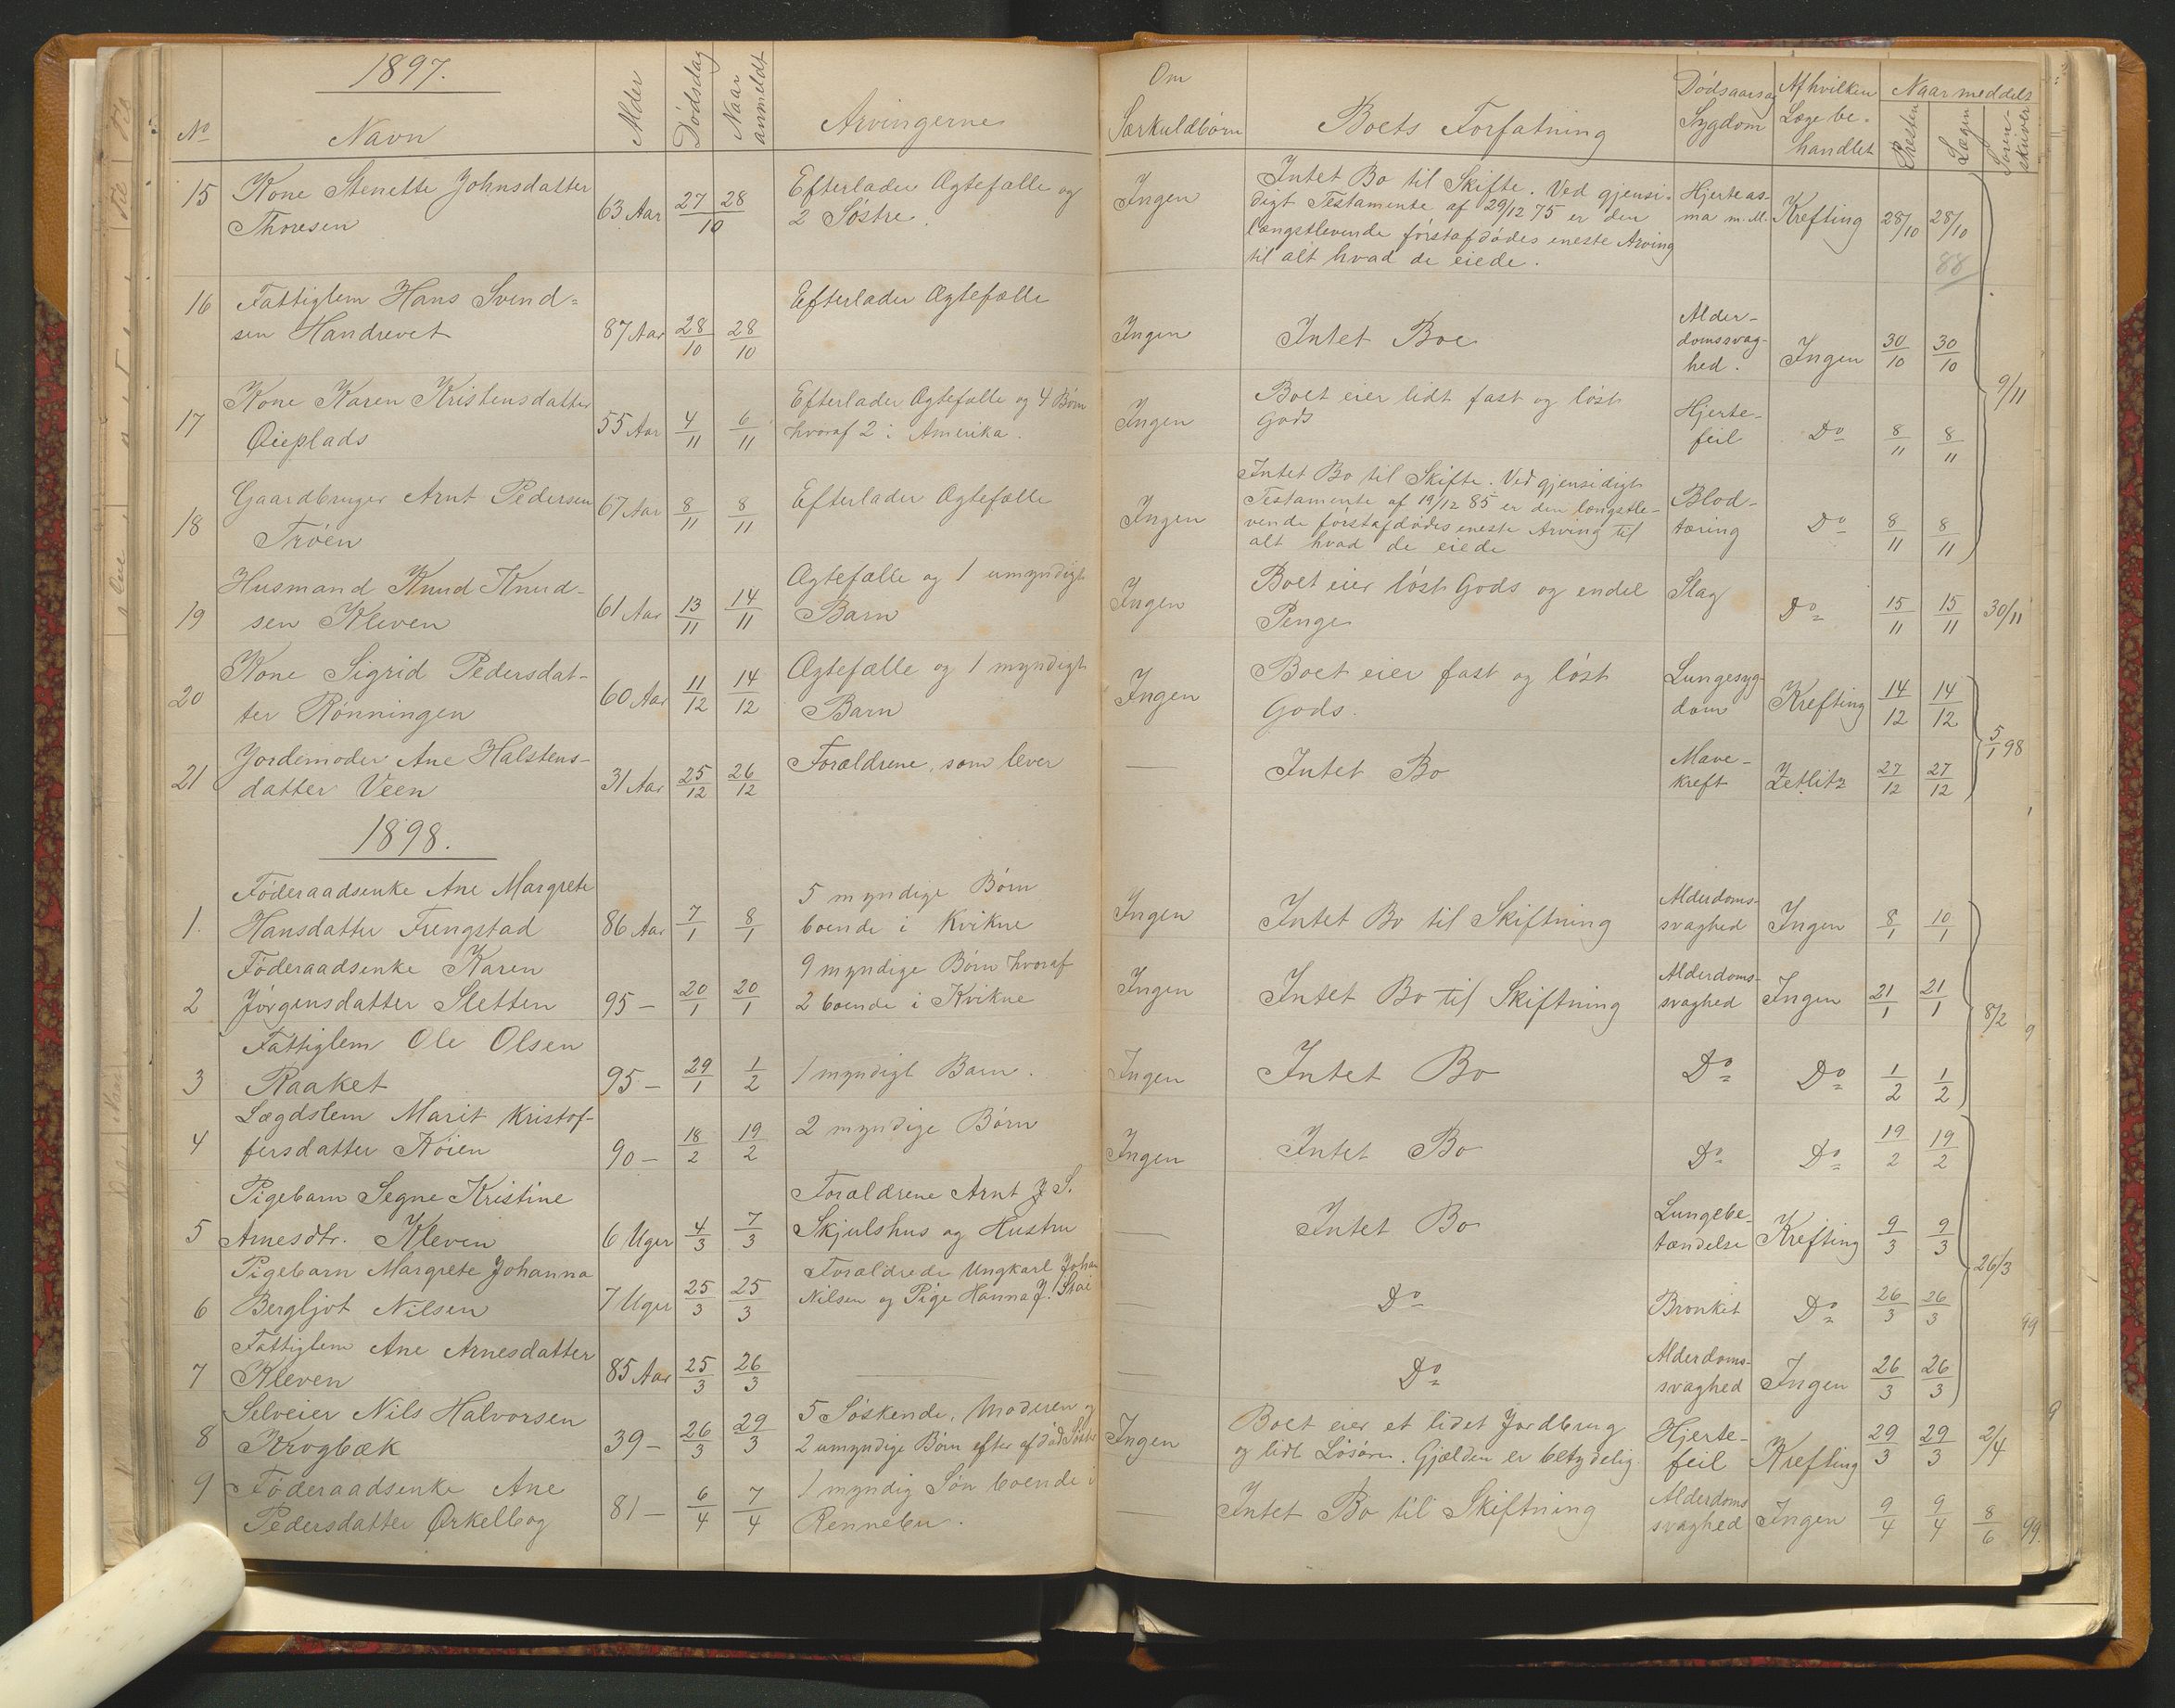 1897.
No Navn Alder Dødsdag Naar anmeldt Arvingerne Om Særkuldbørn Boets Forfatning Dødsaarsag Sygdom Af hvilken Læge behandlet Naar meddelt Presten Lægen Sorenskriver
15 Kone Stenette Johnsdatter Thoresen 63 Aar 27/10 28/10 Efterlader Ægtefælle og 2 Søstre. Ingen Intet Bo til Skifte. Ved gjensidigt Testamente af 29/12 75 er den længstlevende førstafdødes eneste Arving til alt hvad de eiede. Hjerteasma m. M. Krefting 28/10 28/10
88
16 Fattiglem Hans Svendsen Handrevet 87 Aar 28/10 28/10 Efterlader Ægtefælle Ingen Intet Boe Alderdomssvaghed. Ingen 30/10 30/10
9/11
17 Kone Karen Kristensdatter Øieplads 55 Aar 4/11 6/11 Efterlader Ægtefælle og 4 Børn hvoraf 2 i Amerika. Ingen Boet eier lidt fast og løst Gods Hjertefeil Do 8/11 8/11
18 Gaardbruger Arnt Pedersen Trøen 67 Aar 8/11 8/11 Efterlader Ægtefælle Ingen Intet Bo til Skifte. Ved gjensidigt Testamente af 19/12 85 er den længstlevende førstafdødes eneste Arving til alt hvad de eiede Blodtæring Do 8/11 8/11
19 Husmand Knud Knudsen Kleven 61 Aar 13/11 14/11 Ægtefælle og 1 umyndigt Barn Ingen Boet eier løst Gods og endel Penge Slag Do 15/11 15/11 30/11
20 Kone Sigrid Pedersdatter Rønningen 60 Aar 11/12 14/12 Ægtefælle og 1 myndigt Barn Ingen Boet eier fast og løst Gods. Lungesygdom Krefting 14/12 14/12
5/1 98
21 Jordemoder Ane Halstensdatter Veen 31 Aar 25/12 26/12 Forældrene, som lever — Intet Bo Mavekreft Zetlitz 27/12 27/12
1898.
1. Føderaadsenke Ane Margrete Hansdatter Frengstad 86 Aar 7/1 8/1 5 myndige Børn boende i Kvikne Ingen Intet Bo til Skiftning Alderdomssvaghed Ingen 8/1 10/1
2 Føderaadsenke Karen Jørgensdatter Sletten 95 — 20/1 20/1 9 myndige Børn hvoraf 2 boende i Kvikne Ingen Intet Bo til Skiftning Alderdomssvaghed Ingen 21/1 21/1 8/2
3 Fattiglem Ole Olsen Raaket 95 — 29/1 1/2 1 myndigt Barn. Ingen Intet Bo Do Do 1/2 1/2
4 Lægdslem Marit Kristoffersdatter Nøien 90 — 18/2 19/2 2 myndige Børn Ingen Intet Bo Do Do 19/2 19/2
5 Pigebarn Segne Kristine Arnesdtr. Kleven 6 Uger 4/3 7/3 Forældrene Arnt J S. Skjulshus og Hustru — Intet Bo Lungebetændelse Krefting 9/3 9/3
26/3
6 Pigebarn Margrete Johanna Bergljot Nilsen 7 Uger 25/3 25/3 Forældrede Ungkarl Johan Nilsen og Pige Hanna J. — Do Bronkit Do 26/3 26/3
7 Fattiglem Ane Arnesdatter Kleven 85 Aar 25/3 26/3 — — Do Alderdomssvaghed Ingen 26/3 26/3
8 Selveier Nils Halvorsen Krogbæk 39 — 26/3 29/3 5 Søskende, Moderen og 2 umyndige Børn efter afdød Søster Ingen Boet eier et lidet Jordbrug og lidt Løsøre. Gjælden er betydelig. Hjertefeil Krefting 29/3 29/3 2/4
9 Føderaadsenke Ane Pedersdatter Ørkelbog 81 — 6/4 7/4 1 myndig Søn boende i Rennebu. — Intet Bo til Skiftning Alderdomssvaghed Ingen 9/4 9/4 8/6